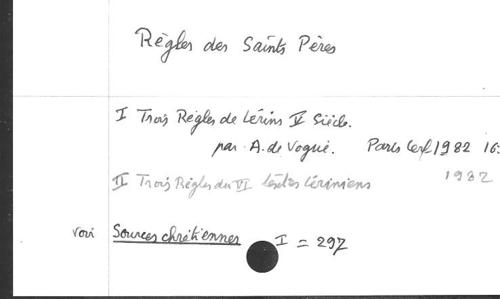 Règles des Saints Pères
I Trois Règles de Lérins V Siècle.
par A. de Vogüé. Paris Cerf 1982 16:
II Trois Règles du VI textes lériniens 1982
voir Sources chrétiennes I = 297